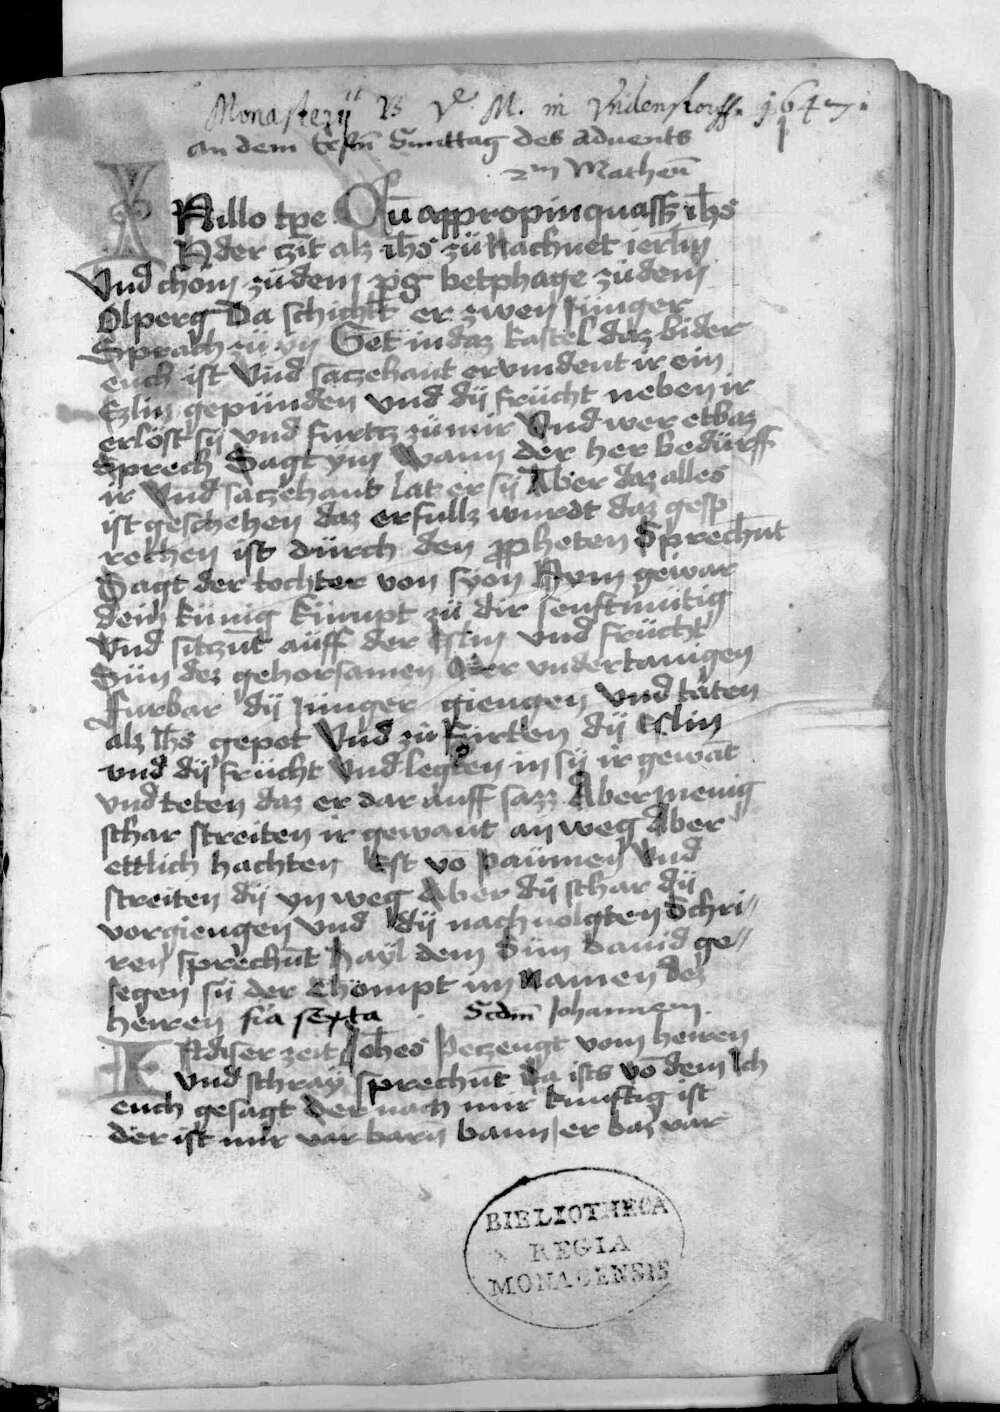 Monasterij B V.e M. in Vndenstorff. 1647.
an dem Ersten Suntag des aduents
Matheū
IN illo tpe Cū appropinquasset ihs
N der czit alz ihs zü nachnet ierl̄m
Vnd chom zü dem p̄g betphage zü dem
Olperg Da schicht er zwen Jünger
Sprach zü yn Get in daz kastel daz bider
euch ist Vnd satzehant ervindent ir ein
Ezlin gepünden vnd dÿ frücht neben ir
erlöst sÿ vnd furtz zü mir Vnd wer etbaz
Sprech Sagt ym Wann der her bedürff
ir Vnd satzehant lat er sÿ Aber daz alles
ist geschehen daz erfullz wurdt daz gesp
rechen ist dürch den ꝓpheten Sprechn̄t
Sagt der tochter von syon Nym gewar
dein künig kümpt zü dir senftmütig
Vnd sitzn̄t aüff der Eslin vnd frücht
Sün dez gehorsamen Oder vndertanigen
Furbar dÿ Jünger giengen Vnd täten
alz Ihs gepot Vnd zü fürten dÿ Eslin
vnd dÿ frücht Vnd legten in sÿ ir gewāt
vnd teten daz er dar auff sazz Aber menig
schar streiten ir gewant an weg Aber
ettlich hachten Est vō paümen Vnd
streiten dÿ yn weg Aber dÿ schar dÿ
vorgiengen Vnd dÿ nachuolgten Schri//
ren sprechn̄t hayl dem Sün dauid ge//
segen sü der chömpt im Namen dez
herren fīa sexta Scdm̄ Johannem.
IN diser zeit Joh̄es petzeugt vom herren
Vnd schray sprechn̄t Da ists vō dem Ich
euch gesagt Der nach mir kunftig ist
der ist mir var barn bann er baz var
BIBLIOTHECA
REGIA
MONACENSIS